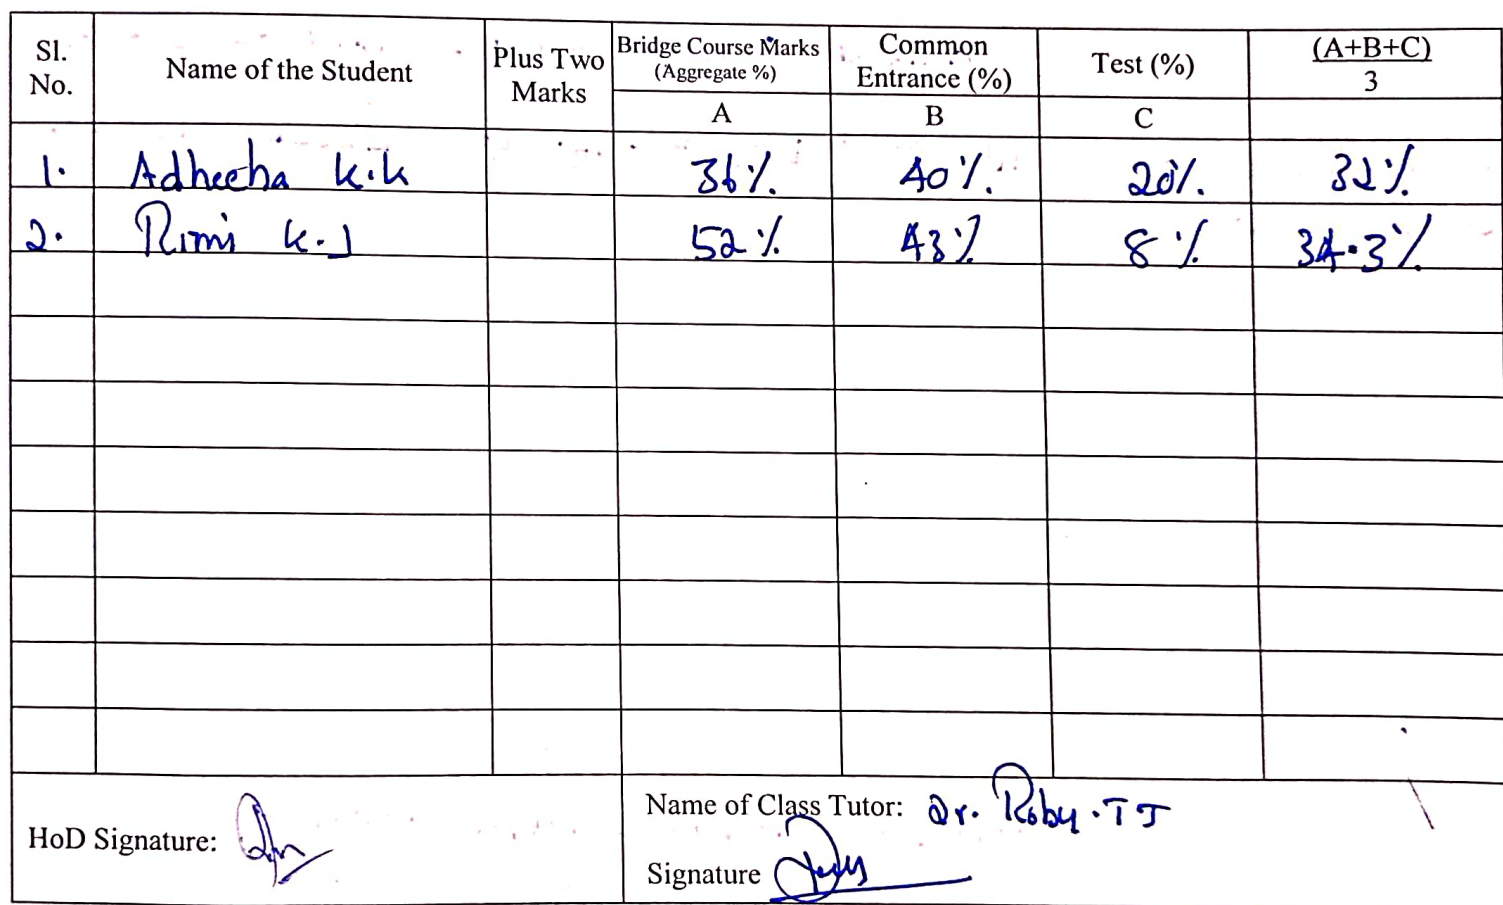 Sl. No. Name of the Student Plus Two Marks Bridge Course Marks (Aggregate %) Common Entrance (%) Test (%) (A+B+C) 3
A B C
1. Adheeba K.K 36% 40% 20% 32%
2. Rimi K.J 52% 43% 8% 34.3%
Name of Class Tutor: Dr. Roby.TJ
HoD Signature:
Signature